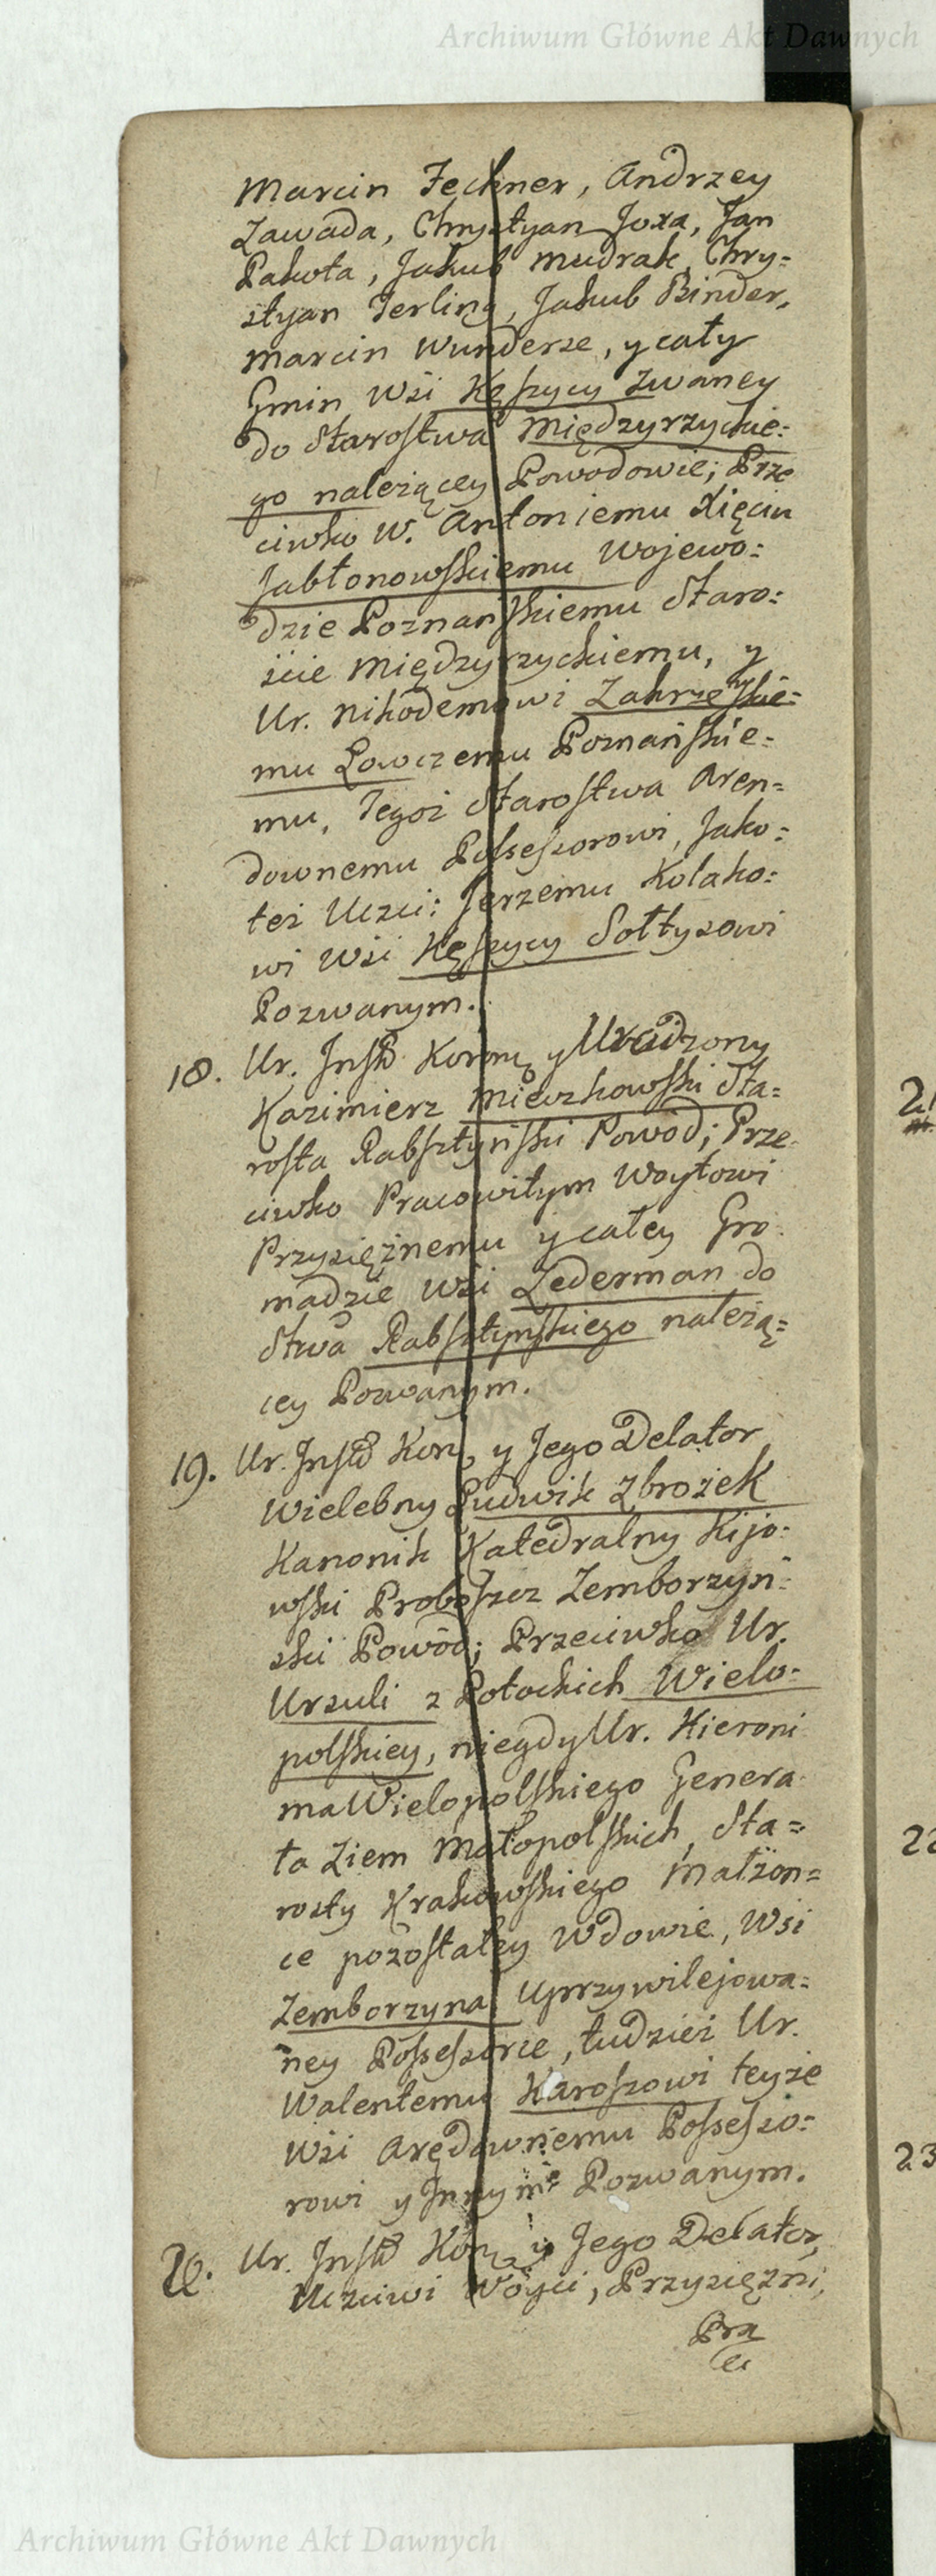 Archiwum Główne Akt Dawnych
Marcin Fechner, Andrzey
Zawada, Chrystyan Joxa, Jan
Pakuła, Jakub Mudrak, Chry=
styan Jerling, Jakub Binder,
Marcin Wunderse, y cały
Gmin Wśi Kęszycy zwaney
do Starostwa Międzyrzyckie=
go należącey Powodowie; Prze
ciwko W. Antoniemu Xięciu
Jabłonowskiemu Wojewo=
dzie Poznańskiemu Staro=
ście Międzyrzyckiemu, y
Ur. Nikodemowi Zakrzewskie=
mu Łowczemu Poznańskie=
mu, Tegoż Starostwa Aren=
downemu Possessorowi, Jako=
też Uczci: Jerzemu Kolako=
wi Wśi Kęszycy Sołtysowi
Pozwanym.
18. Ur. Inst Koronny y Urodzony
Kazimierz Mieczkowski Sta=
rosta Rabsztyński Powod; Prze
ciwko Pracowitym Woytowi
Przysiężnemu y całey Gro
madzie Wśi Lederman do
Stwa Rabsztynskiego należą=
cey Pozwanym.
19. Ur. Inst Kon, y Jego Delator
Wielebny Ludwik Zbrożek
Kanonik Katedralny Kijo=
wski Proboszcz Zemborzyń=
ski Powód; Przeciwko Ur.
Urszuli z Potockich Wielo=
polskiey, niegdy Ur. Hieroni
ma Wielopolskiego Genera
ła Ziem Małopolskich, Sta=
rosty Krakowskiego Małżon=
ce pozostałey Wdowie, Wsi
Zemborzyna Uprzywilejowa=
ney Possessorce, tudzież Ur.
Walentemu Karoszowi teyże
Wśi Arędownemu Possesso=
rowi y Innym Pozwanym.
20. Ur. Inst Kon, y Jego Delator,
Uczciwi Wóyci, Przysiężni,
Pra
ci
21
22
23
Archiwum Główne Akt Dawnych